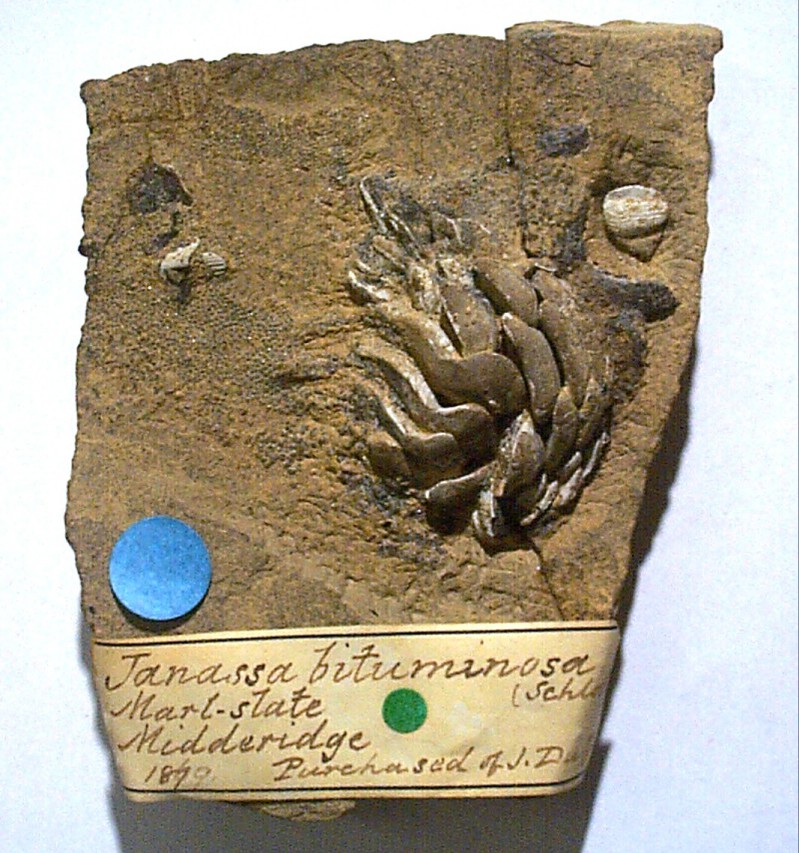 Janassa bituminosa
(Schl
Marl-slate
Midderidge
1879. Purchased of J. Du